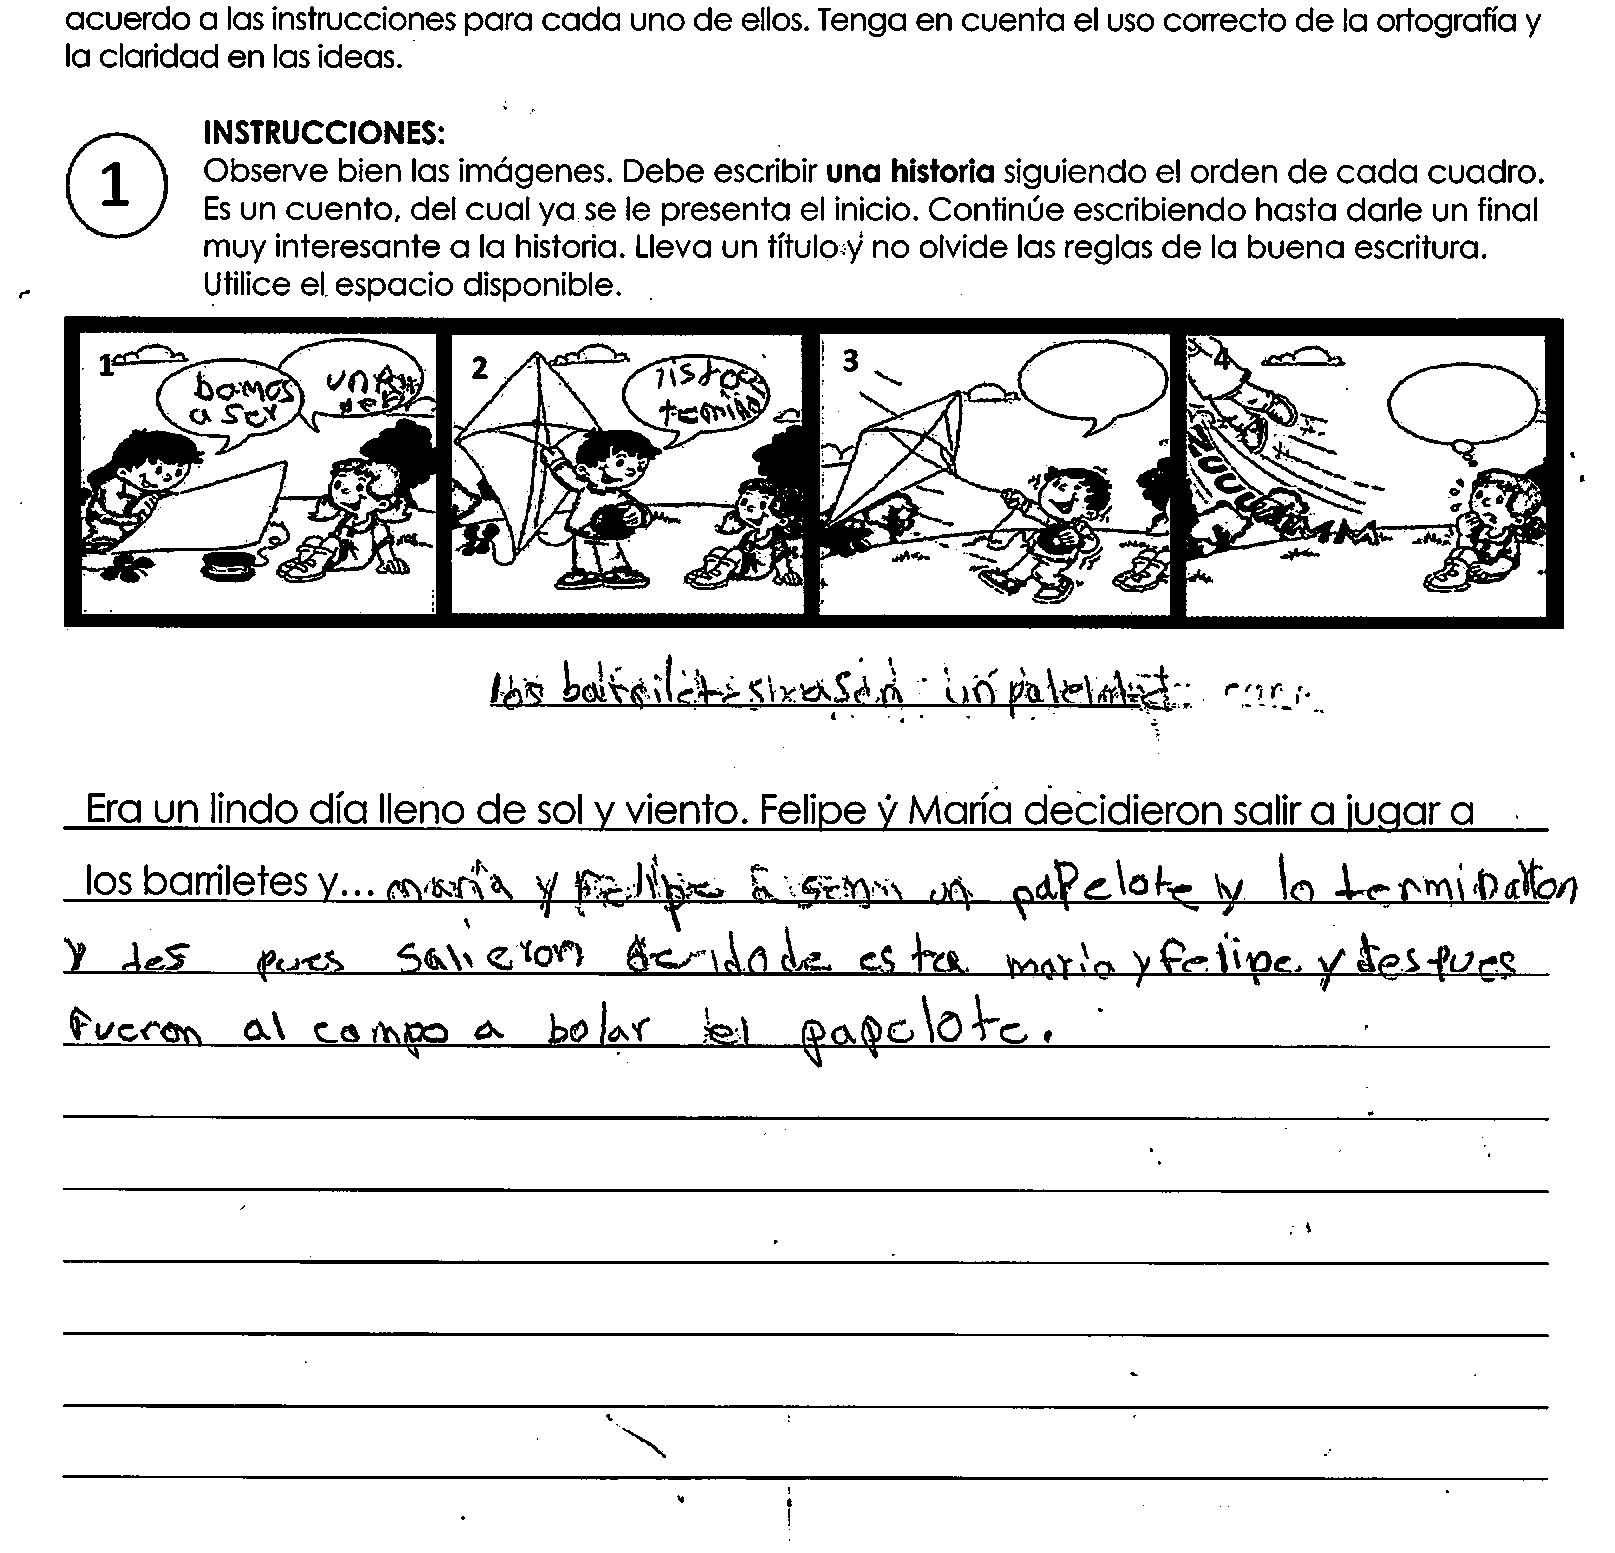 acuerdo a las instrucciones para cada uno de ellos. Tenga en cuenta el uso correcto de la ortografía y
la claridad en las ideas.
1
INSTRUCCIONES:
Observe bien las imágenes. Debe escribir una historia siguiendo el orden de cada cuadro.
Es un cuento, del cual ya se le presenta el inicio. Continúe escribiendo hasta darle un final
muy interesante a la historia. Lleva un título y no olvide las reglas de la buena escritura.
Utilice el espacio disponible.
1
bamos
a ser
2
3
4
ZUUUUM
los
Era un lindo día lleno de sol y viento. Felipe y María decidieron salir a jugar a
los barriletes y... maría y Felipe un papelote y lo terminaron
y des pues salieron de esta maria y felipe y despues
Fueron al campo a bolar el papelote.